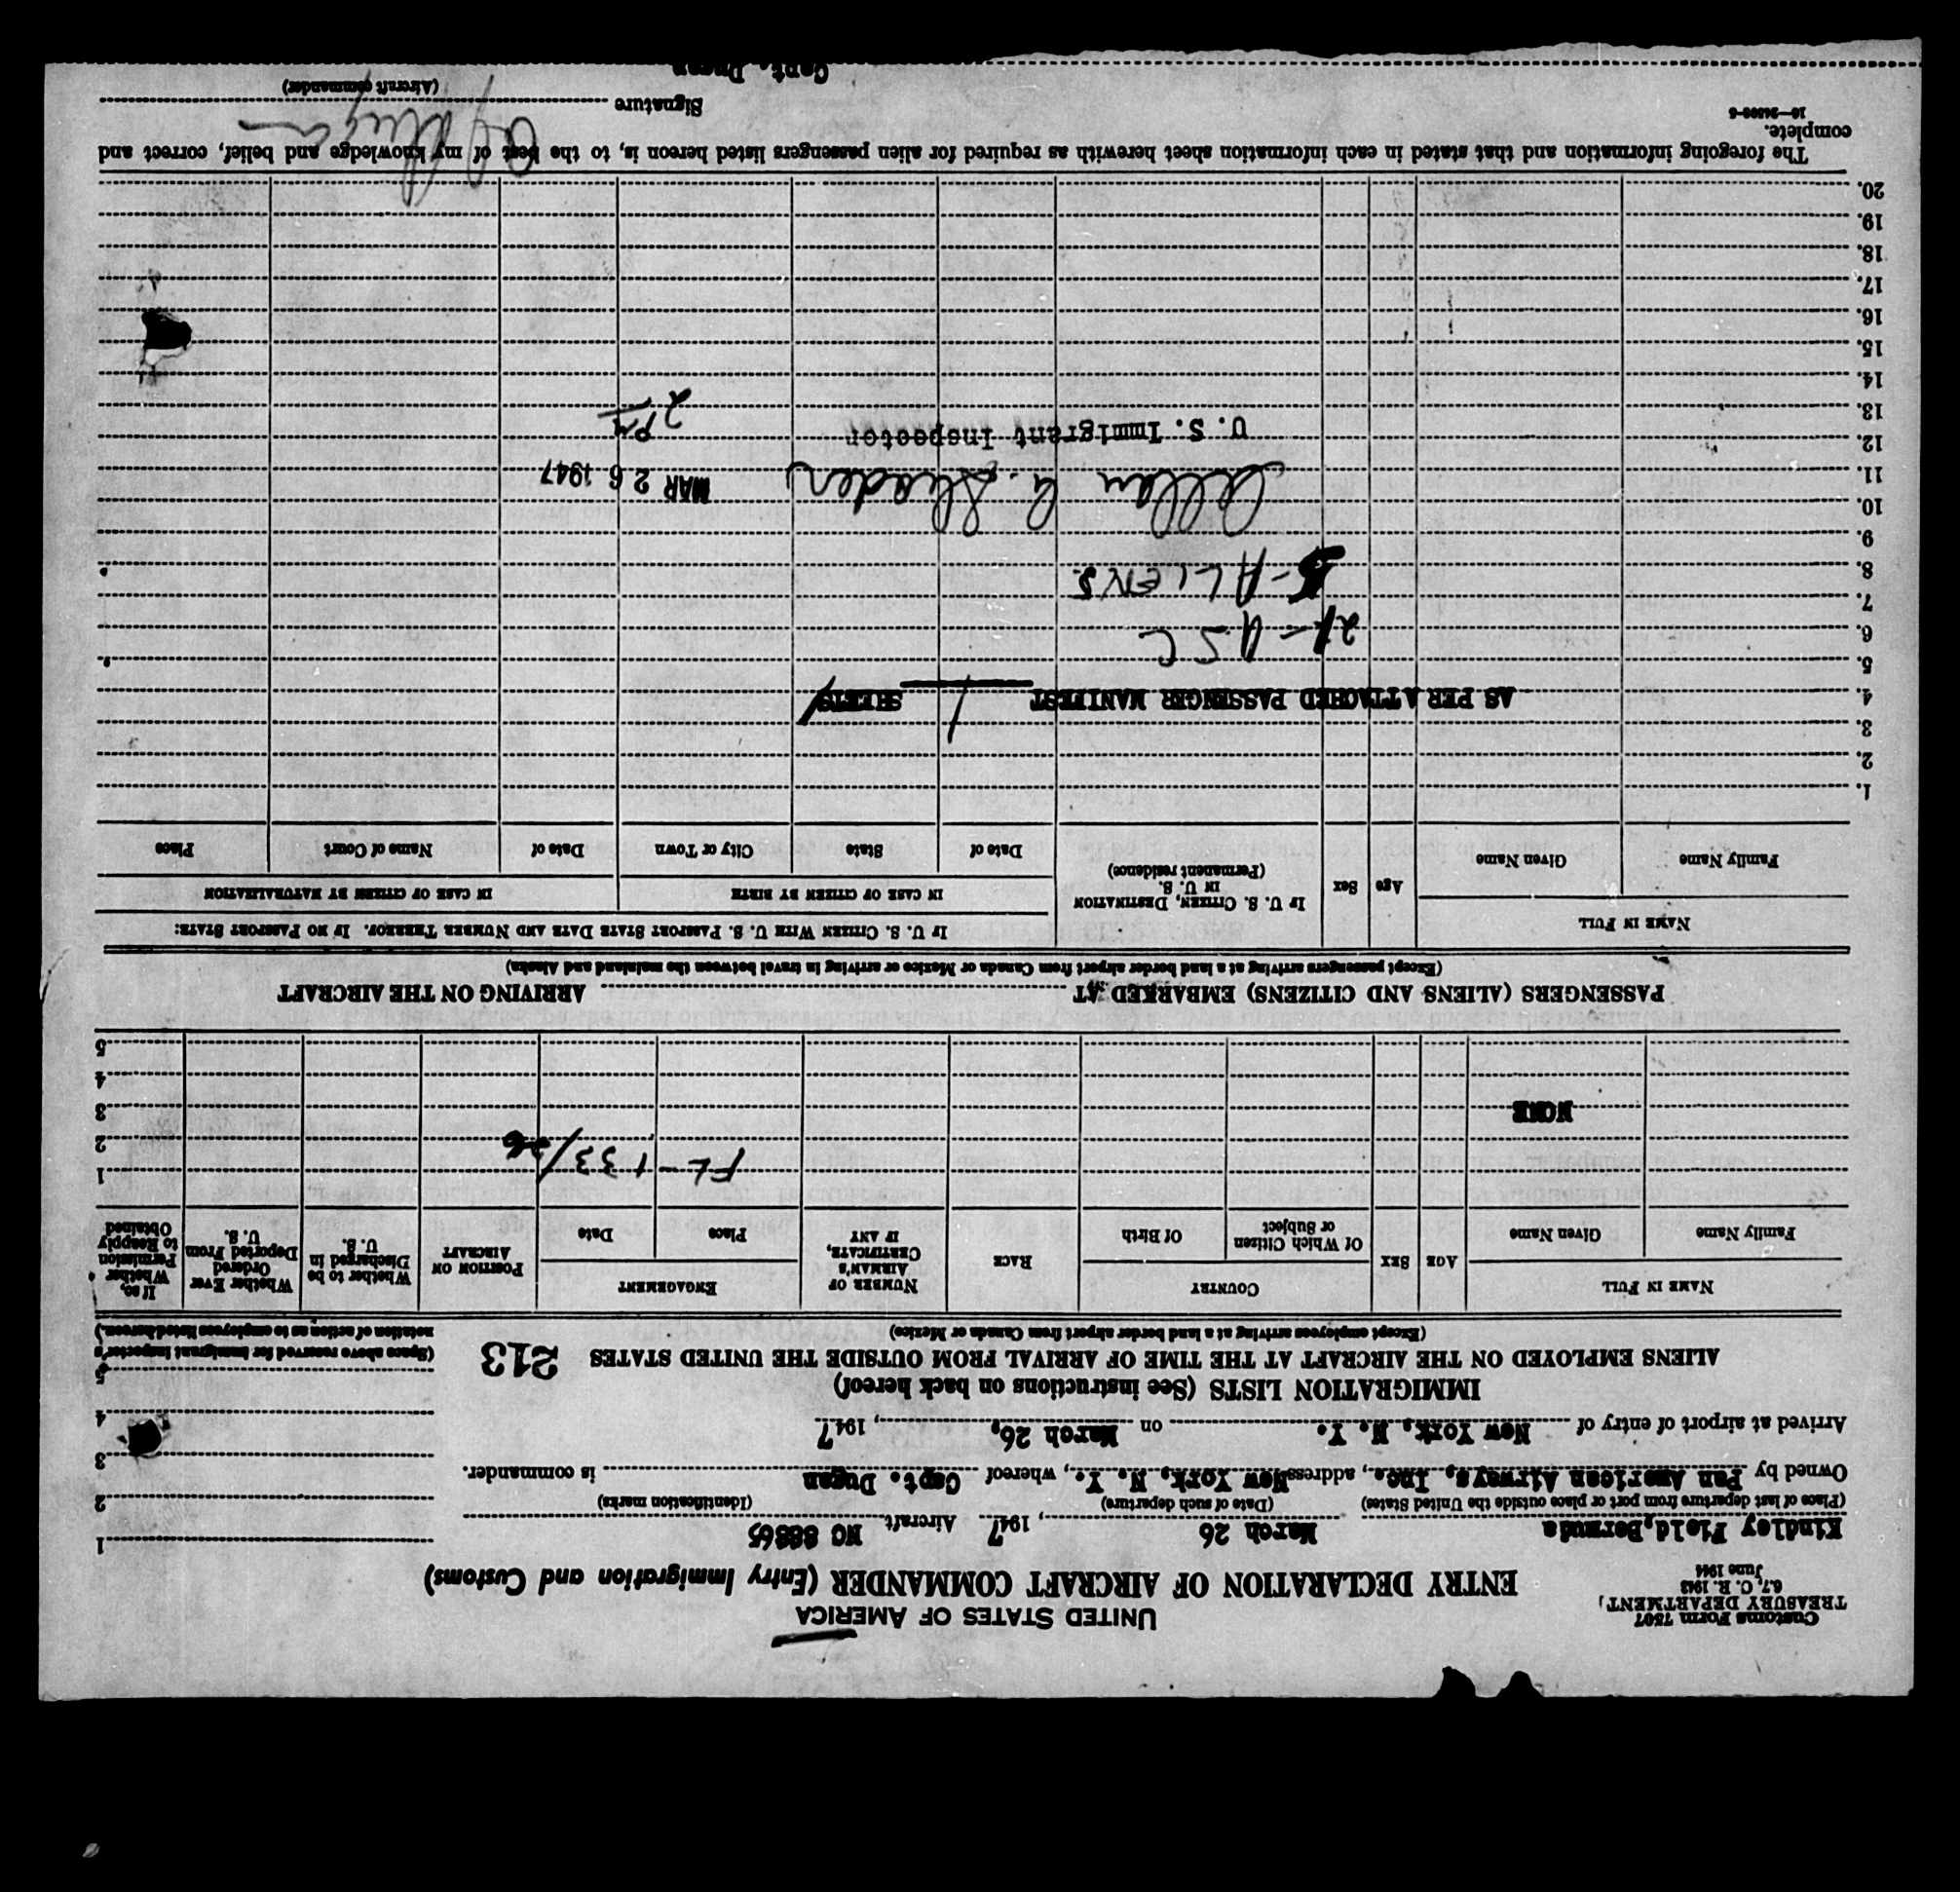 Customs Form 7507
TREASURY DEPARTMENT,
6.7, C. R. 1943
June 1944
UNITED STATES OF AMERICA
ENTRY DECLARATION OF AIRCRAFT COMMANDER (Entry Immigration and Customs)
Kindley Field, Bermuda March 26, 1947 Aircraft NC 88865
(Place of last departure from port or place outside the United States) (Date of such departure) (Identification marks)
Owned by Pan American Airways, Inc., address New York, N. Y., whereof Capt. Dugan is commander.
Arrived at airport of entry of New York, N. Y. on March 26, 1947
1
2
3
4
5
IMMIGRATION LISTS (See instructions on back hereof)
ALIENS EMPLOYED ON THE AIRCRAFT AT THE TIME OF ARRIVAL FROM OUTSIDE THE UNITED STATES 213
(Except employees arriving at a land border airport from Canada or Mexico)
(Space above reserved for immigrant inspector's
notation of action as to employees listed hereon.)
NAME IN FULL
Family Name Given Name
AGE
SEX
COUNTRY
Of Which Citizen or Subject
Of Birth
RACE
NUMBER OF AIRMAN'S CERTIFICATE, IF ANY
ENGAGEMENT
Place Date
POSITION ON AIRCRAFT
Whether to be Discharged in U. S.
Whether Ever Ordered Deported From U. S.
If so, Whether Permission to Reapply Obtained
1
FL - 133/26
2
NONE
3
4
5
PASSENGERS (ALIENS AND CITIZENS) EMBARKED AT ARRIVING ON THE AIRCRAFT
(Except passengers arriving at a land border airport from Canada or Mexico or arriving in travel between the mainland and Alaska)
NAME IN FULL
Family Name Given Name
Age
Sex
IF U. S. CITIZEN, DESTINATION IN U. S.
(Permanent residence)
IF U. S. CITIZEN WITH U. S. PASSPORT STATE DATE AND NUMBER THEREOF. IF NO PASSPORT STATE:
IN CASE OF CITIZEN BY BIRTH
IN CASE OF CITIZEN BY NATURALIZATION
Date of State City or Town Date of Name of Court Place
1.
2.
3.
4. AS PER ATTACHED PASSENGER MANIFEST 1 SHEETS
5.
6. 21 - USC
7.
8. - ALIENS.
9.
10. Allan G.
11. MAR 26 1947
12. U. S. Immigrant Inspector
13. 2 PM
14.
15.
16.
17.
18.
19.
20.
The foregoing information and that stated in each information sheet herewith as required for alien passengers listed hereon is, to the best of my knowledge and belief, correct and
complete.
Signature Dugan
(Aircraft commander)
Capt. Dugan